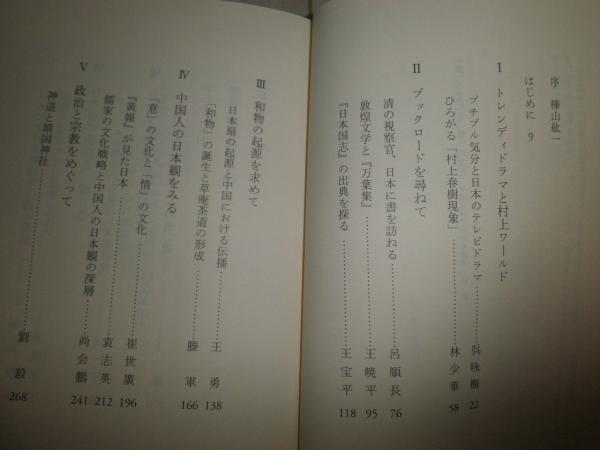 序 樺山紘一
はじめに 9
Ⅰ トレンディドラマと村上ワールド
プチブル気分と日本のテレビドラマ……呉咏梅 22
ひろがる「村上春樹現象」……林少華 58
Ⅱ ブックロードを尋ねて
清の視察官、日本に書を訪ねる……呂順長 76
敦煌文学と『万葉集』……王暁平 95
『日本国志』の出典を探る……王宝平 118
Ⅲ 和物の起源を求めて
日本扇の起源と中国における伝播……王勇 138
「和物」の誕生と草庵茶道の形成……滕軍 166
Ⅳ 中国人の日本観をみる
「意」の文化と「情」の文化……崔世廣 196
『黄報』が見た日本……袁志英 212
儒家の文化戦略と中国人の日本観の深層……尚会鵬 241
Ⅴ 政治と宗教をめぐって
神道と靖国神社……劉毅 268